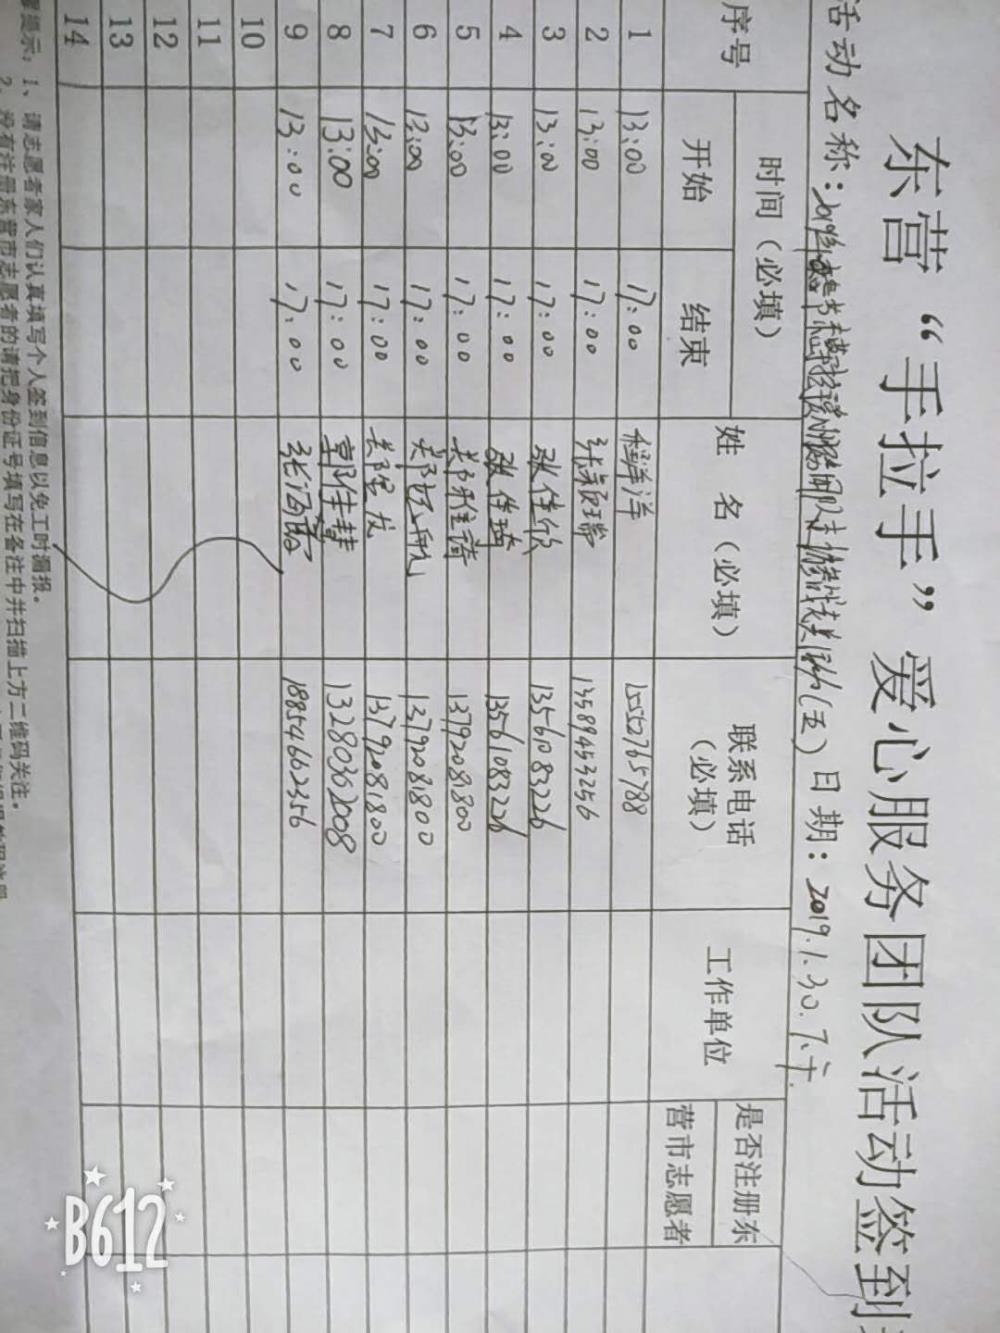 东营“手拉手”爱心服务团队活动签到
活动名称： (五) 日期：2019.1.30.下午.
序号 时间（必填） 姓 名（必填） 联系电话（必填） 工作单位 是否注册东营市志愿者
开始 结束
1 13:00 17:00 程洋洋 15552765788
2 13:00 17:00 13589453256
3 13:00 17:00 张佳欣 13561083226
4 13:00 17:00 张佳琦 13561083226
5 13:00 17:00 13792081800
6 13:00 17:00 13792081800
7 13:00 17:00 13792081800
8 13:00 17:00 郭佳慧 13280362008
9 13:00 17:00 18854662356
10
11
12
13
14
提示：1、请志愿者家人们认真填写个人签到信息以免工时漏报。
2、没有注册东营市志愿者的请把身份证号填写在备注中并扫描上方二维码关注。
B612